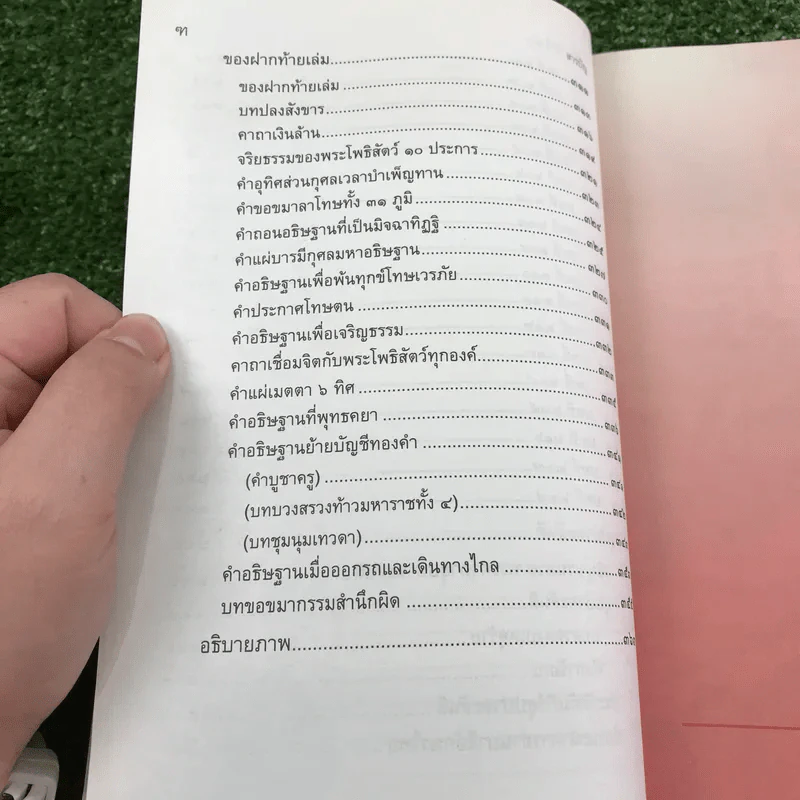 ฑ
ของฝากท้ายเล่ม............๓๑๑
ของฝากท้ายเล่ม............๓๑๓
บทปลงสังขาร............๓๑๖
คาถาเงินล้าน............๓๑๙
จริยธรรมของพระโพธิสัตว์ ๑๐ ประการ............๓๒๑
คำอุทิศส่วนกุศลเวลาบำเพ็ญทาน............๓๒๓
คำขอขมาลาโทษทั้ง ๓๑ ภูมิ............๓๒๔
คำถอนอธิษฐานที่เป็นมิจฉาทิฏฐิ............๓๒๕
คำแผ่บารมีกุศลมหาอธิษฐาน............๓๒๗
คำอธิษฐานเพื่อพ้นทุกข์โทษเวรภัย............๓๓๐
คำประกาศโทษตน............๓๓๑
คำอธิษฐานเพื่อเจริญธรรม............๓๓๒
คาถาเชื่อมจิตกับพระโพธิสัตว์ทุกองค์............๓๓๓
คำแผ่เมตตา ๖ ทิศ............๓๓๕
คำอธิษฐานที่พุทธคยา............๓๓๖
คำอธิษฐานย้ายบัญชีทองคำ
(คำบูชาครู)
(บทบวงสรวงท้าวมหาราชทั้ง ๔)
(บทชุมนุมเทวดา)
คำอธิษฐานเมื่อออกรถและเดินทางไกล
บทขอขมากรรมสำนึกผิด
อธิบายภาพ